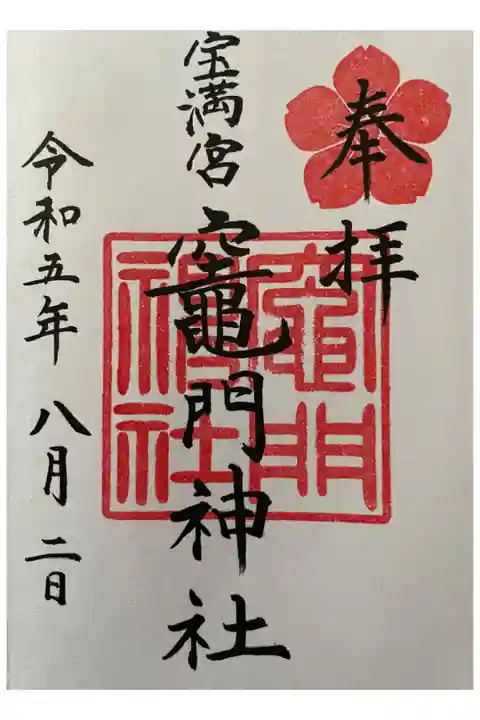 奉拝
宝満宮
竈門神社
竈門神社
令和五年 八月二日